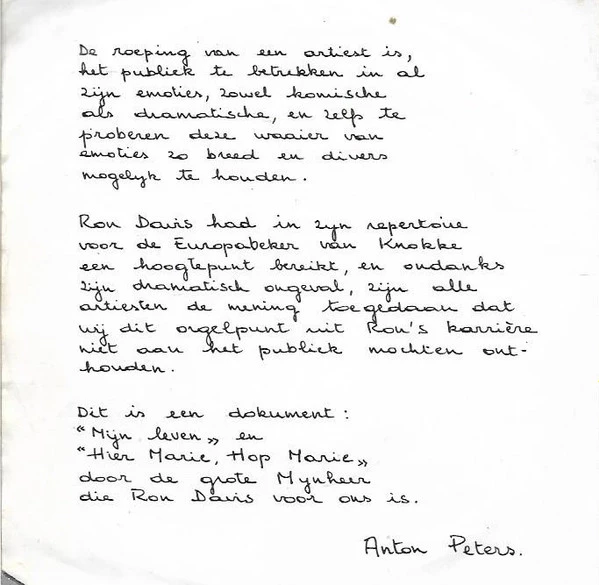 De roeping van een artiest is,
het publiek te betrekken in al
zijn emoties, zowel komische
als dramatische, en zelfs te
proberen deze waaier van
emoties zo breed en divers
mogelyk te houden.
Ron Davis had in zyn repertoire
voor de Europabeker van Knokke
een hoogtepunt bereikt, en ondanks
zijn dramatisch ongeval, zijn alle
artiesten de mening toegedaan dat
wij dit orgelpunt uit Ron's karrière
niet aan het publiek mochten ont-
houden.
Dit is een dokument:
“Mijn leven„ en
“Hier Marie, Hop Marie„
door de grote Mynheer
die Ron Davis voor ons is.
Anton Peters.